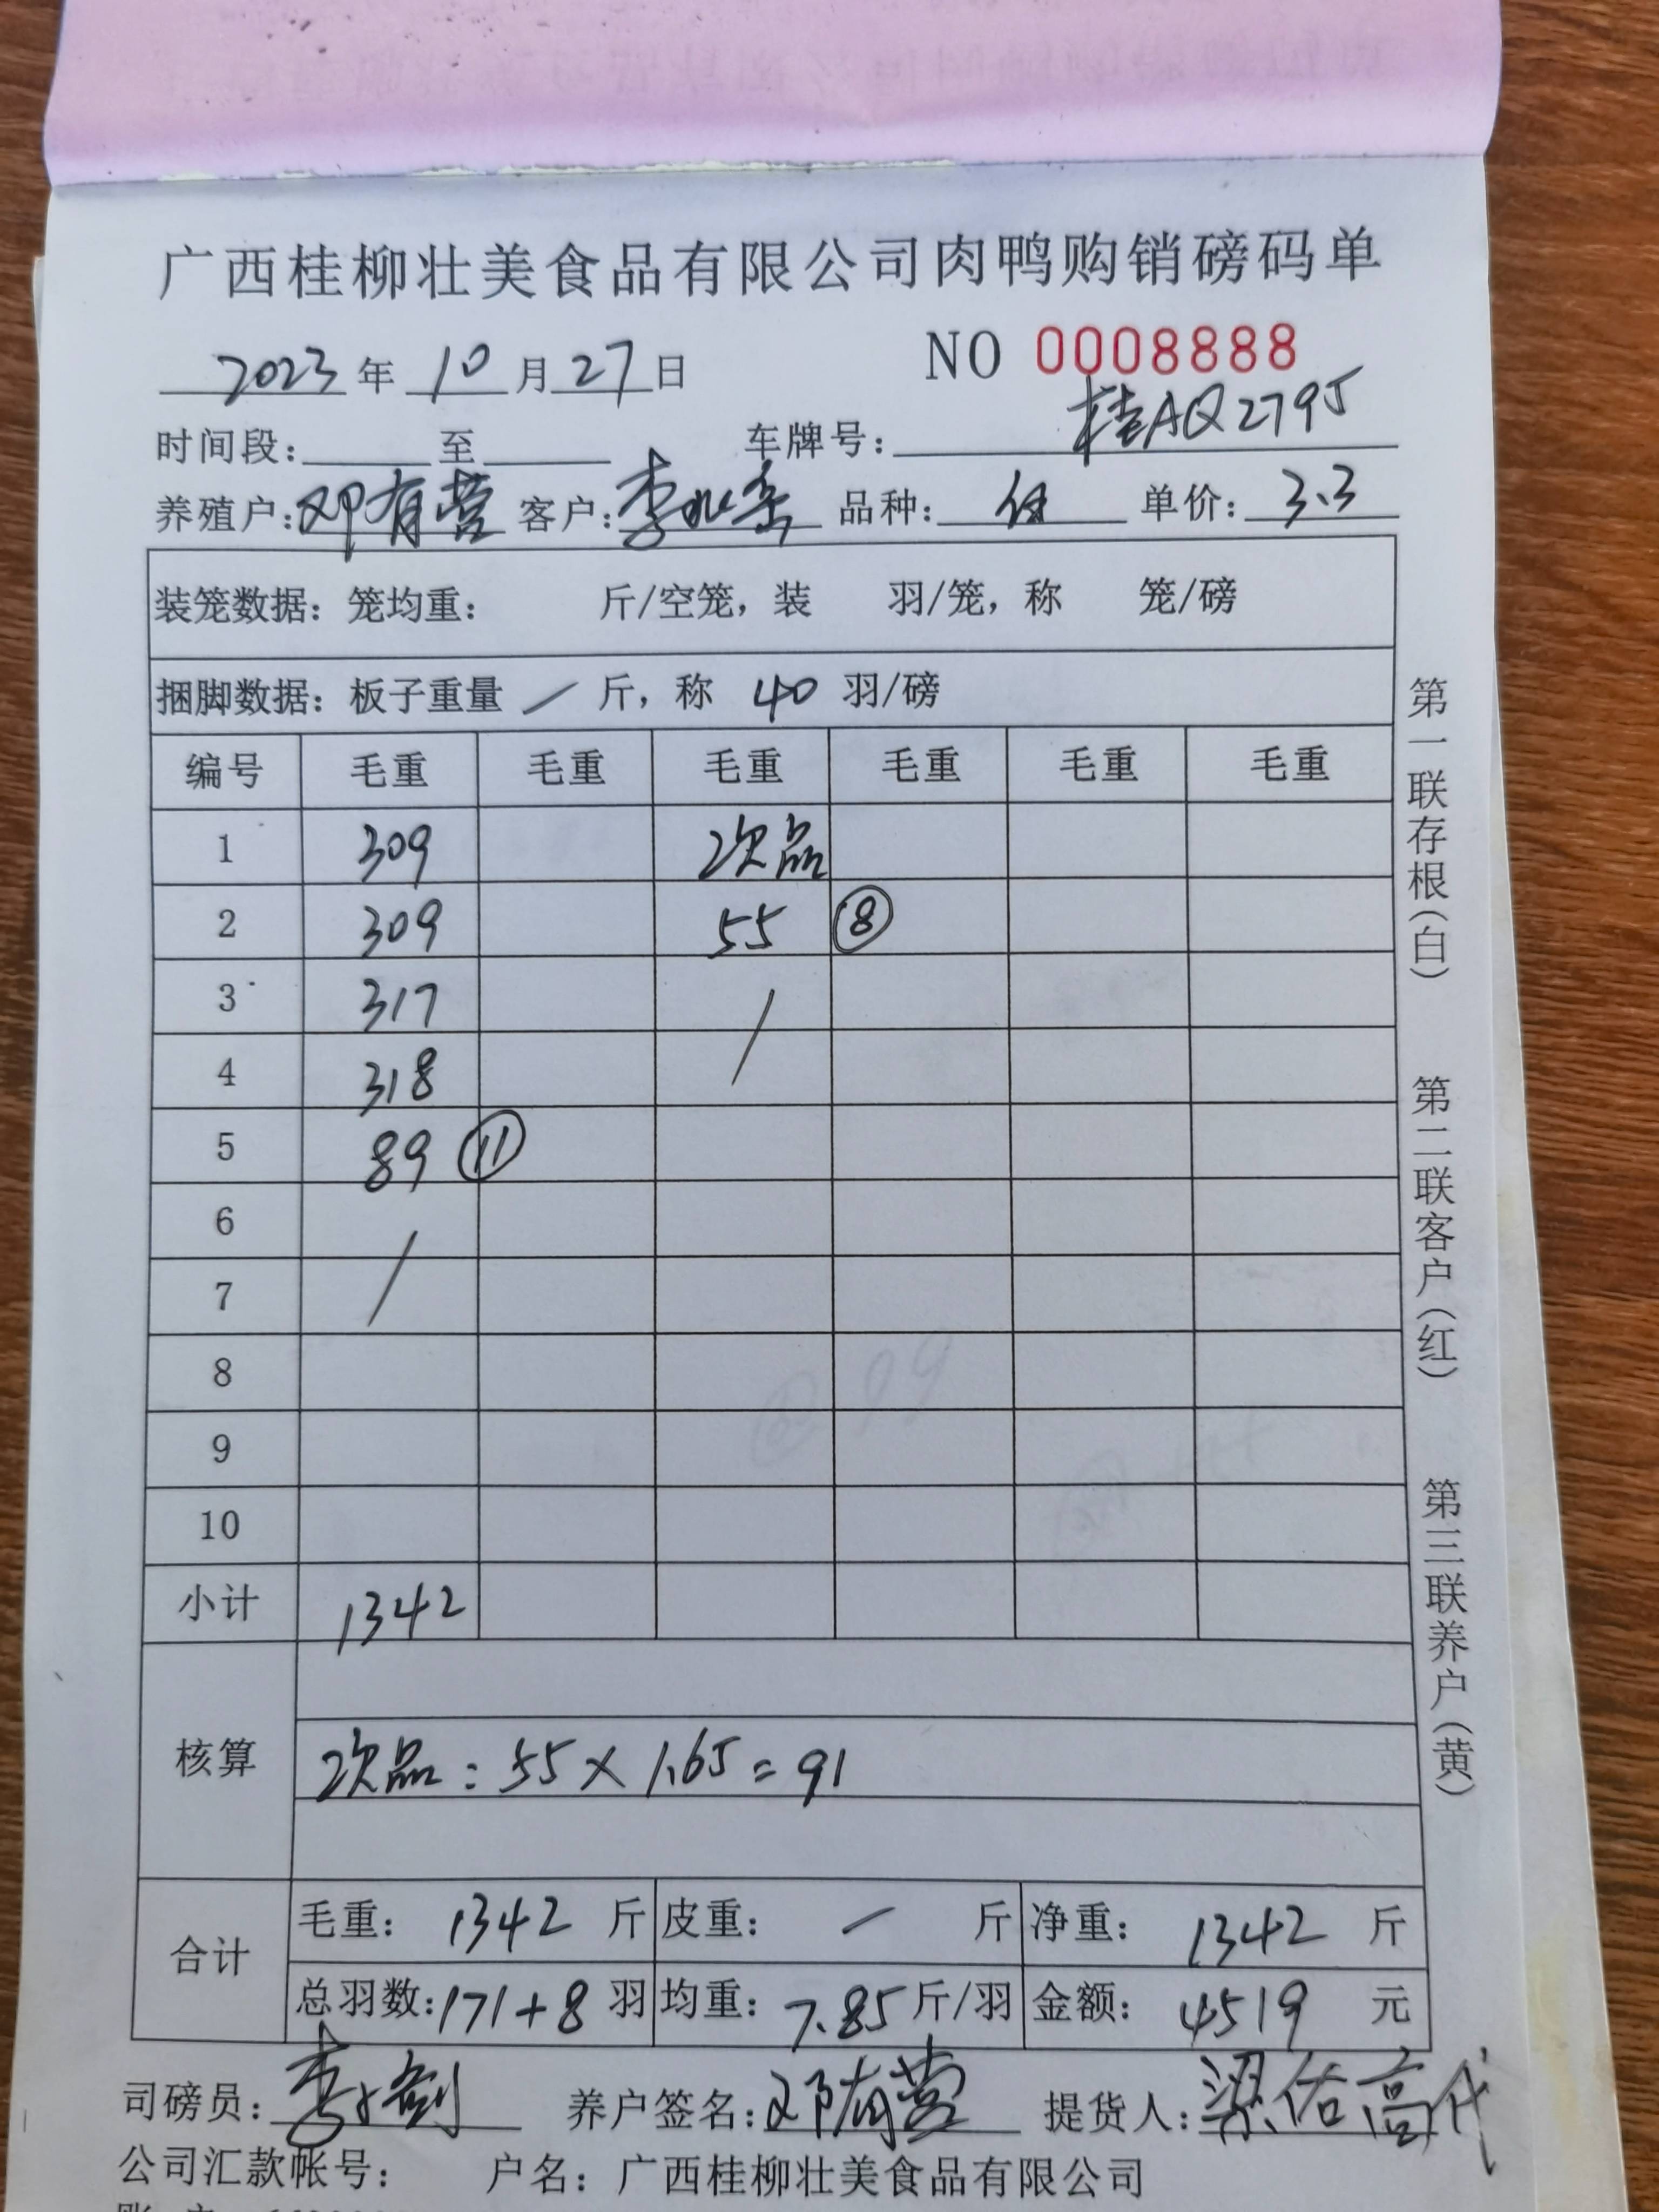 广西桂柳壮美食品有限公司肉鸭购销磅码单
2023年10月27日 NO 0008888
时间段: 至 车牌号: 桂AQ2795
养殖户: 邓有营 客户: 李 品种: 单价: 3.3
装笼数据: 笼均重: 斤/空笼, 装 羽/笼, 称 笼/磅
捆脚数据: 板子重量 / 斤, 称 40 羽/磅
编号 毛重 毛重 毛重 毛重 毛重 毛重
1 309 次品
2 309 55 ⑧
3 317 /
4 318
5 89 ⑪
6 /
7
8
9
10
小计 1342
核算
次品: 55×1.65=91
合计
毛重: 1342 斤 皮重: 一 斤 净重: 1342 斤
总羽数: 171+8 羽 均重: 7.85 斤/羽 金额: 4519 元
司磅员: 李 养户签名: 邓有营 提货人: 梁佑高代
公司汇款帐号: 户名: 广西桂柳壮美食品有限公司
第一联存根(白) 第二联客户(红) 第三联养户(黄)